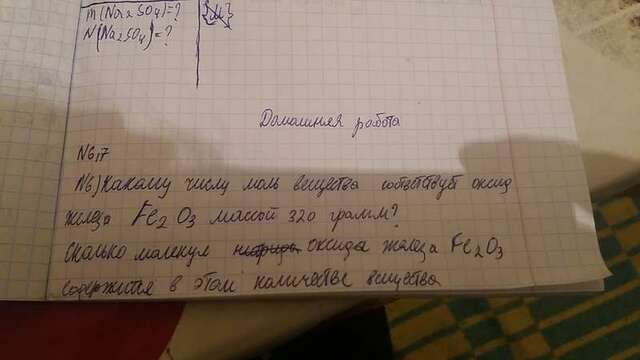 m(Na2SO4)=?
N(Na2SO4)=?
Домашняя работа
№6,7
№6) Какому числу моль вещества соответствует оксид
железа Fe2O3 массой 320 грамм?
Сколько молекул оксида железа Fe2O3
содержится в этом количестве вещества